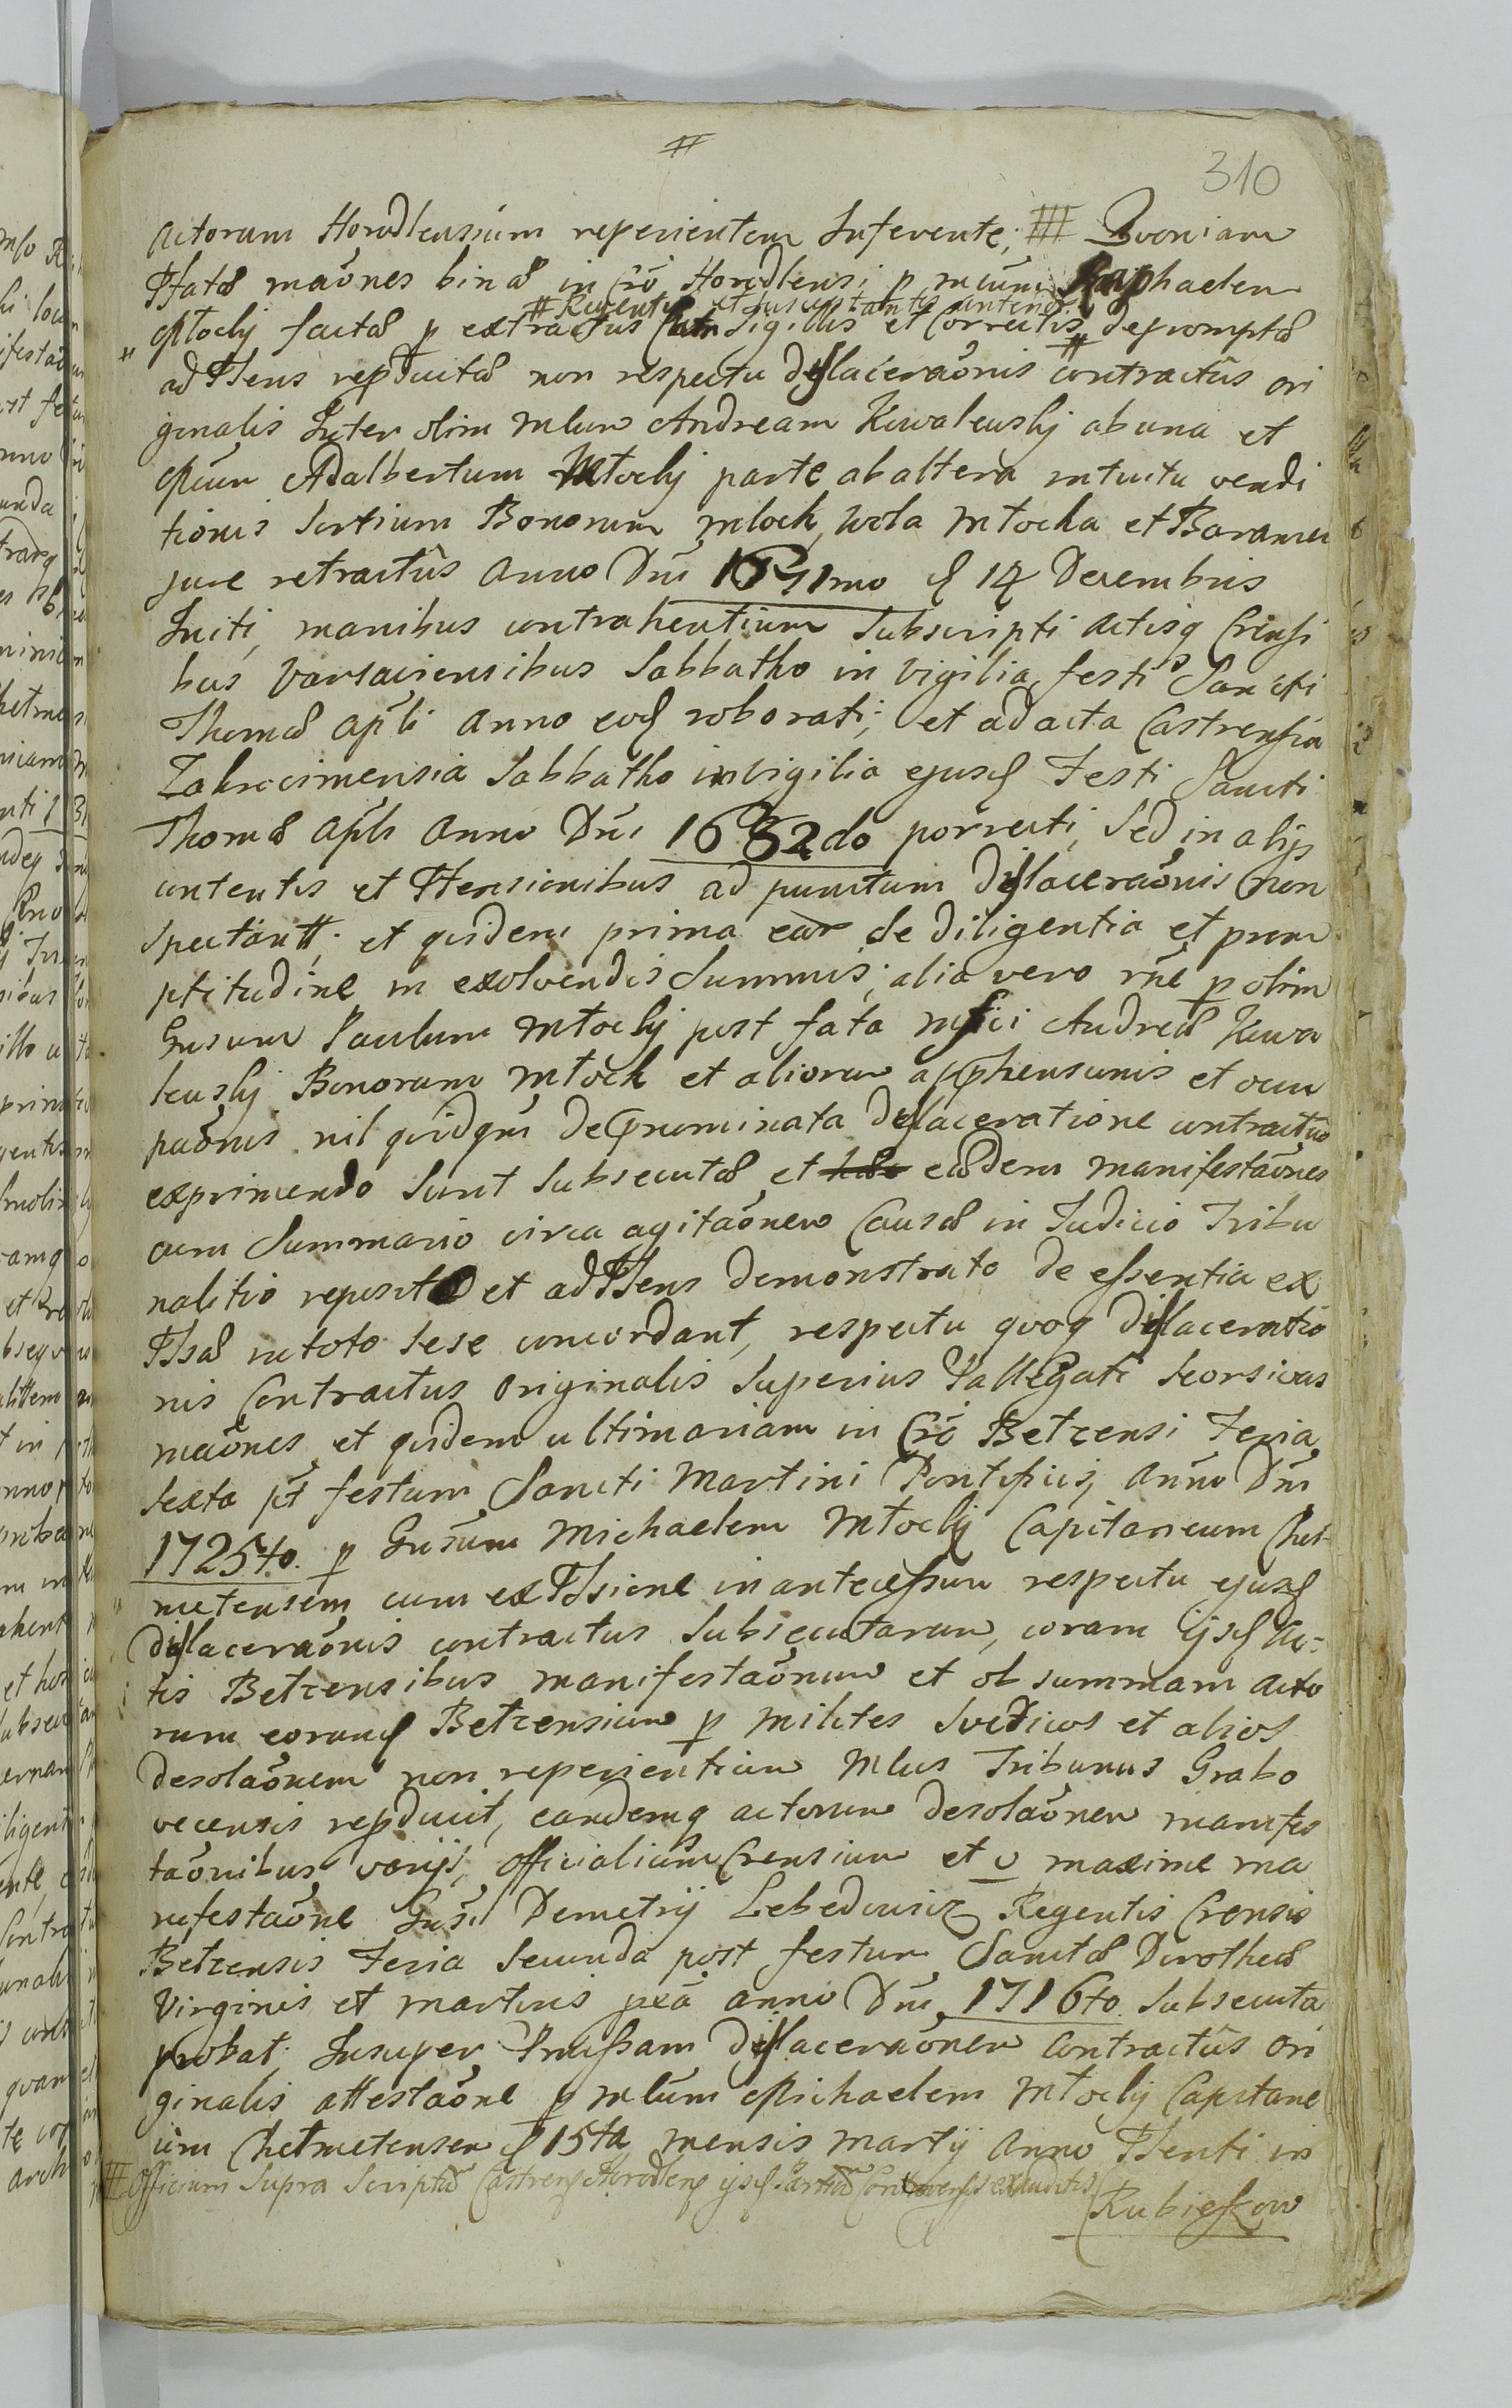 #
310
Actorum Horodlensium reperientem Inferente; ## Quoniam
Pfatas maones binas in Cro Horodlensi p mcum Raphaelem
# Regentis et Susceptantis anteno
Młocki factas p extractus cum Sigillis et Correctis # depromptas
ad Psens repductas non respectu dislaceraonis contractûs ori
ginalis Inter olim Mlum Andream Kowalewskj ab una et
Mcum Adalbertum Młockj parte ab altera intuitu vendi
tionis Sortium Bonorum Młock, Wola Młocka et Baraniec
jure retractûs Anno Dni 1651mo d 14 Decembris
Initi, manibus contrahentium Subscripti Actisq Crensi
bus Varsaviensibus Sabbatho in Vigilia festi Sancti
Thomæ Apli Anno eod roborati; et ad acta Castrensia
Zakrocimensia Sabbatho in Vigilia ejusd Festi Sancti
Thomæ Apli Anno Dni 1652do porrecti, Sed in alijs
contentis et Ptensionibus ad punctum dislaceraonis non
Spectantt; et qvidem prima ear de diligentia et prom
ptitudine in exolvendis Summis; alia vero rne p olim
Gnsum Paulum Młockj post fata mfici Andreæ Kowa
lewskj Bonorum Młock et aliorum apphensionis et occu
paonis nil qvidqm de Pnominata dislaceratione contractus
exprimendo Sunt Subsecutæ et eædem manifestaones
cum Summario circa agitaonem Causæ in Judicio Tribu
nalitio reposito et ad Psens demonstrato de essentia ex
Pssas in toto sese concordant, respectu qvoq dislaceratio
nis Contractus Originalis Superius Pallegati Seorsivas
maones et qvidem ultimariam in Cro Betzensi Feria
Sexta pt festum Sancti Martini Pontificis, Anno Dni
1725to. p Gnsum Michaelem Młockj Capitaneum Cheł-
metensem cum exPssione in antecessum respectu ejusd
dislaceraonis contractus Subsecutarum, coram ijsd Ac-
tis Betzensibus manifestaonum et ob summam Acto
rum eorund Betzensium p Milites Svedicos et alios
desolaonem non reperientium Mlus Tribunus Grabo
vecensis repduxit, eandemq actorum desolaonem manifes
taonibus varijs, Officialium Crensium et v maxime ma
nifestaone Gnsi Demetrij Lebedowicz Regentis Crensis
Betzensis Feria Secunda post festum Sanctæ Dorotheæ
Virginis et Martiris pxa anno Dni 1716to. Subsecuta
probat; Insuper Pmissam dislaceraonem Contractûs Ori
ginalis attestaone p Mlum Michaelem Młockj Capitane
um Chełmetensem d 15ta mensis Martij Anno Psenti in
## Officium Supra Scriptum Castrens Horodlens ijsd Partium Controversijs exauditis
Rubieszow